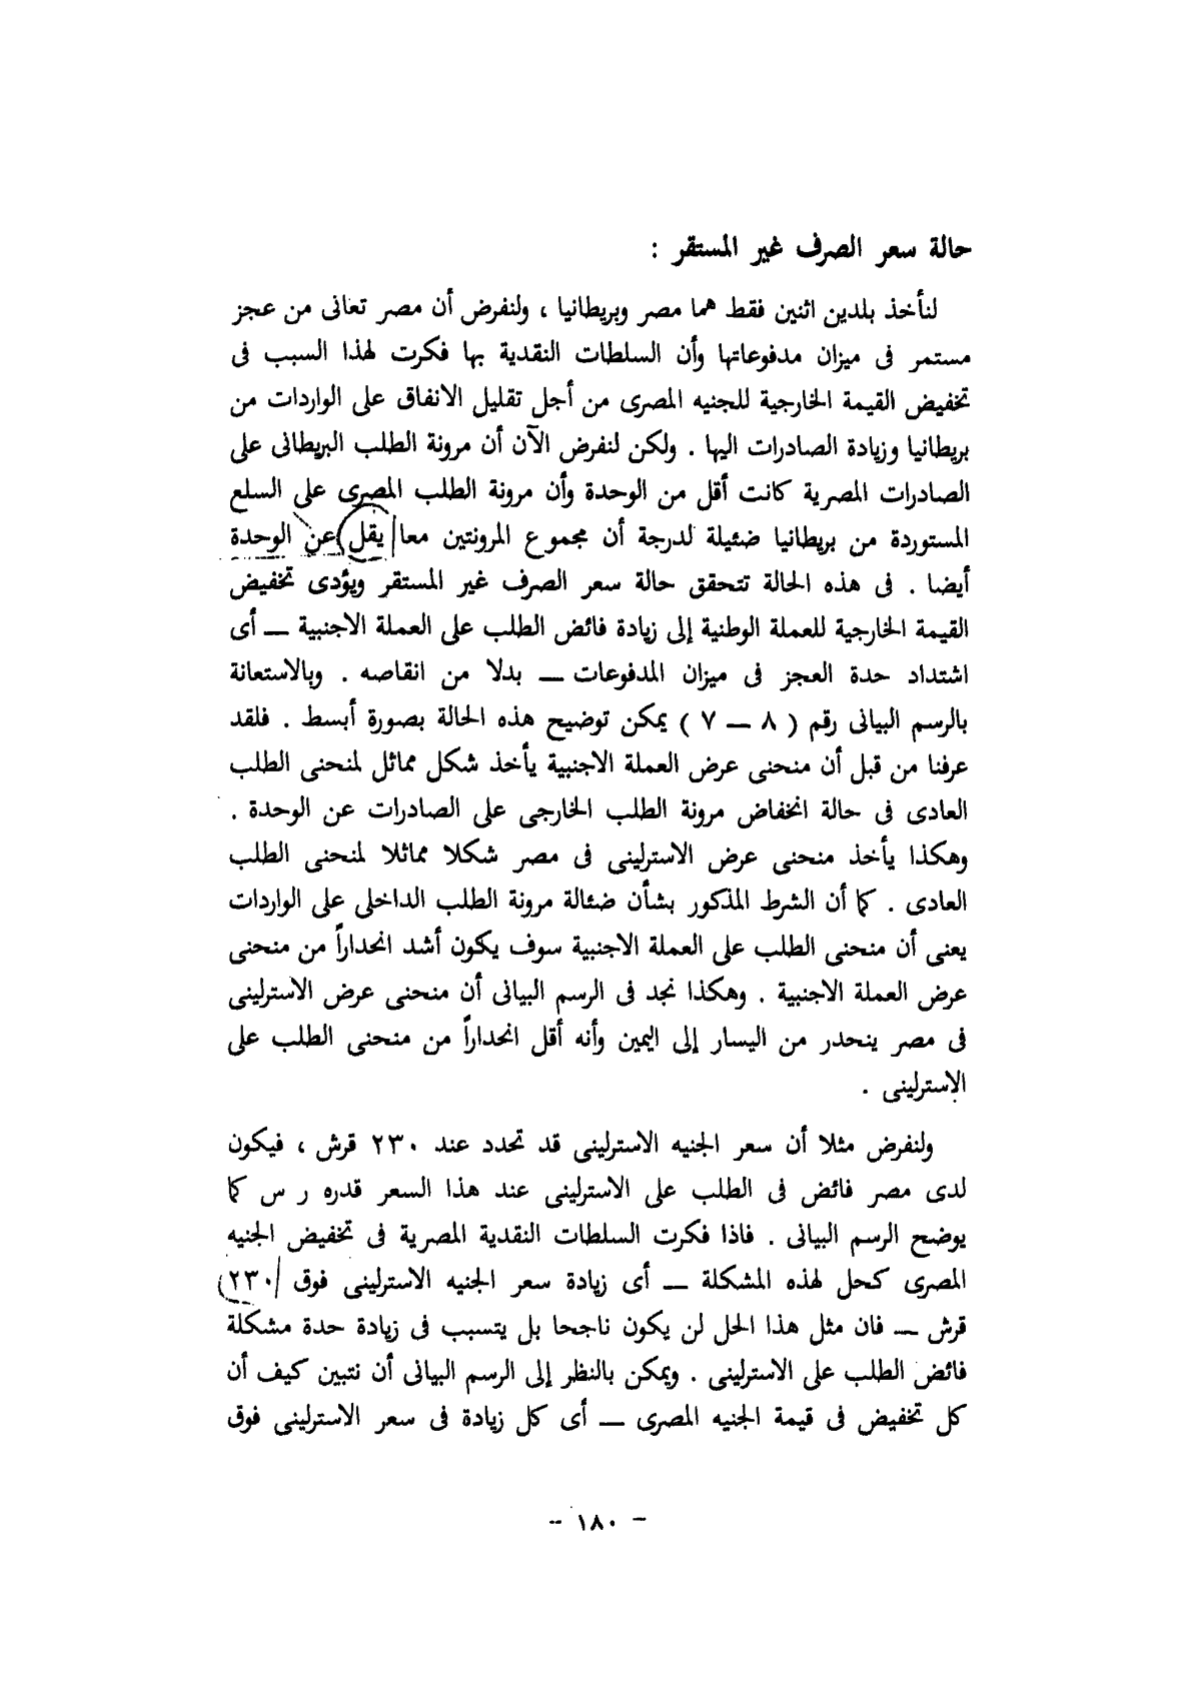 حالة سعر الصرف غير المستقر :
لنأخذ بلدين اثنين فقط هما مصر وبريطانيا ، ولنفرض أن مصر تعانى من عجز
مستمر فى ميزان مدفوعاتها وأن السلطات النقدية بها فكرت لهذا السبب فى
تخفيض القيمة الخارجية للجنيه المصرى من أجل تقليل الانفاق على الواردات من
بريطانيا وزيادة الصادرات اليها . ولكن لنفرض الآن أن مرونة الطلب البريطانى على
الصادرات المصرية كانت أقل من الوحدة وأن مرونة الطلب المصرى على السلع
المستوردة من بريطانيا ضئيلة لدرجة أن مجموع المرونتين معا يقل عن الوحدة
أيضا . فى هذه الحالة تتحقق حالة سعر الصرف غير المستقر ويؤدى تخفيض
القيمة الخارجية للعملة الوطنية إلى زيادة فائض الطلب على العملة الاجنبية — أى
اشتداد حدة العجز فى ميزان المدفوعات — بدلا من انقاصه . وبالاستعانة
بالرسم البيانى رقم ( ٨ — ٧ ) يمكن توضيح هذه الحالة بصورة أبسط . فلقد
عرفنا من قبل أن منحنى عرض العملة الاجنبية يأخذ شكل مماثل لمنحنى الطلب
العادى فى حالة انخفاض مرونة الطلب الخارجى على الصادرات عن الوحدة .
وهكذا يأخذ منحنى عرض الاسترلينى فى مصر شكلا مماثلا لمنحنى الطلب
العادى . كما أن الشرط المذكور بشأن ضئالة مرونة الطلب الداخلى على الواردات
يعنى أن منحنى الطلب على العملة الاجنبية سوف يكون أشد انحداراً من منحنى
عرض العملة الاجنبية . وهكذا نجد فى الرسم البيانى أن منحنى عرض الاسترلينى
فى مصر ينحدر من اليسار إلى اليمين وأنه أقل انحداراً من منحنى الطلب على
الاسترلينى .
ولنفرض مثلا أن سعر الجنيه الاسترلينى قد تحدد عند ٢٣٠ قرش ، فيكون
لدى مصر فائض فى الطلب على الاسترلينى عند هذا السعر قدره ر س كما
يوضح الرسم البيانى . فاذا فكرت السلطات النقدية المصرية فى تخفيض الجنيه
المصرى كحل لهذه المشكلة — أى زيادة سعر الجنيه الاسترلينى فوق ٢٣٠
قرش — فان مثل هذا الحل لن يكون ناجحا بل يتسبب فى زيادة حدة مشكلة
فائض الطلب على الاسترلينى . ويمكن بالنظر إلى الرسم البيانى أن نتبين كيف أن
كل تخفيض فى قيمة الجنيه المصرى — أى كل زيادة فى سعر الاسترلينى فوق
- ١٨٠ -